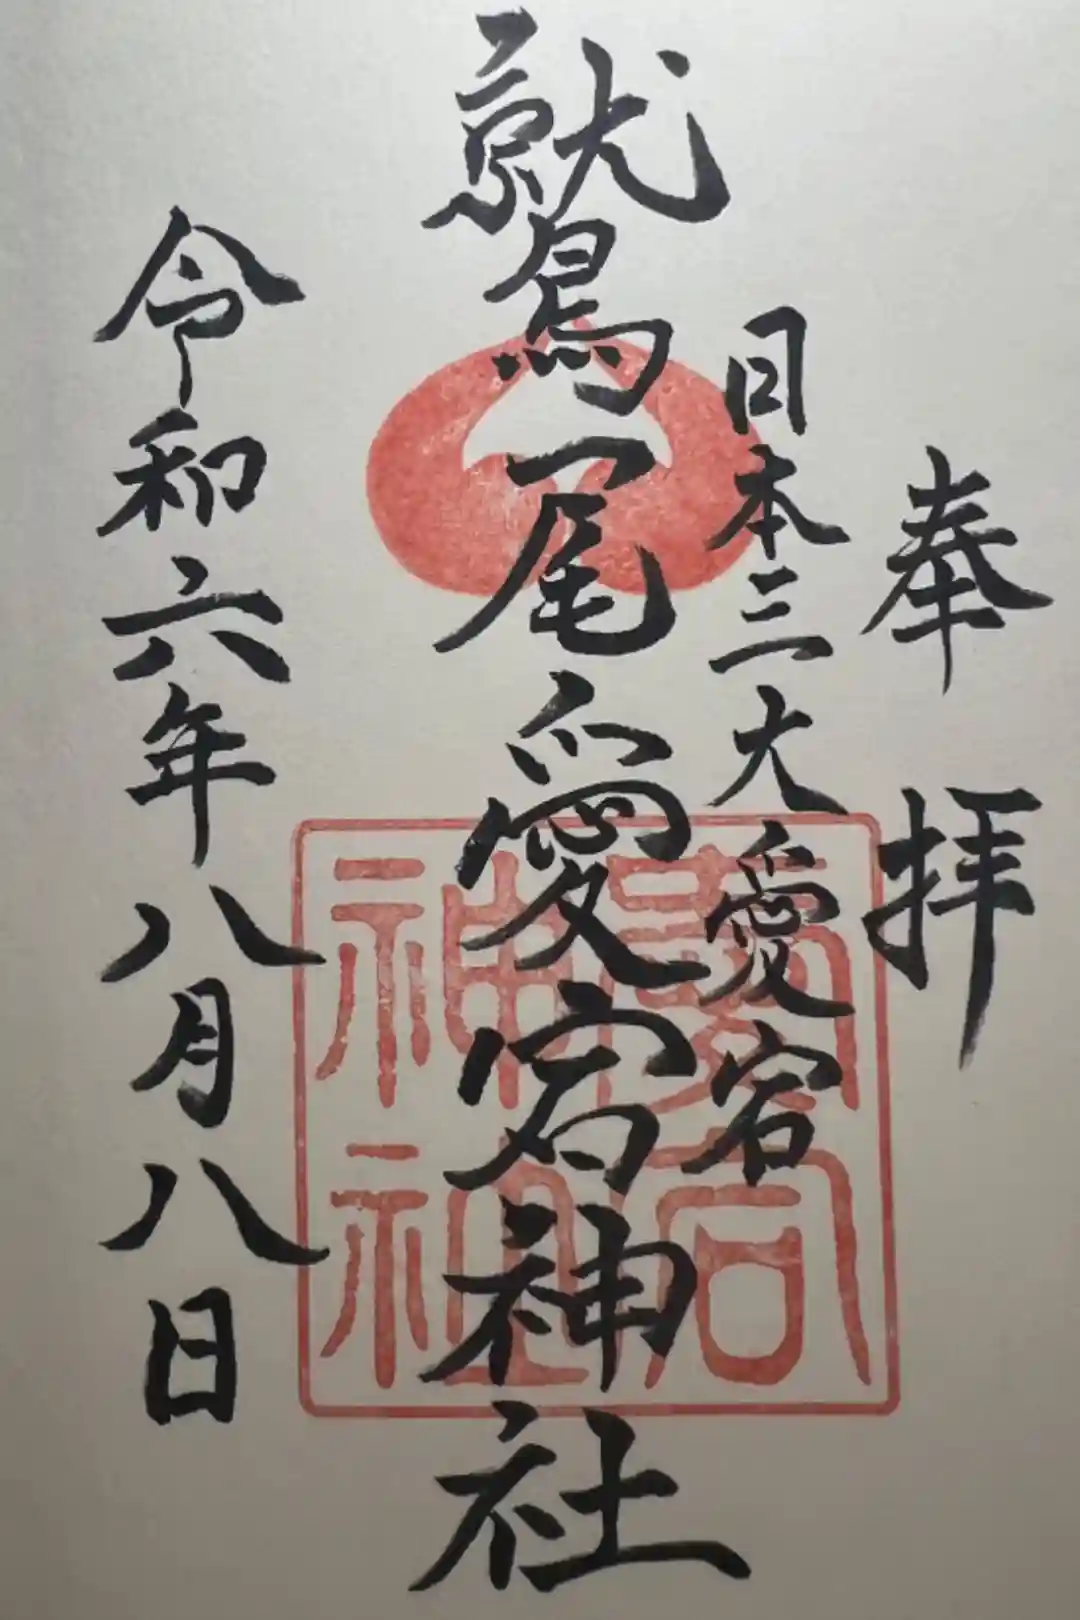 奉拝
日本三大愛宕
鷲尾愛宕神社
愛宕
神社
令和六年八月八日